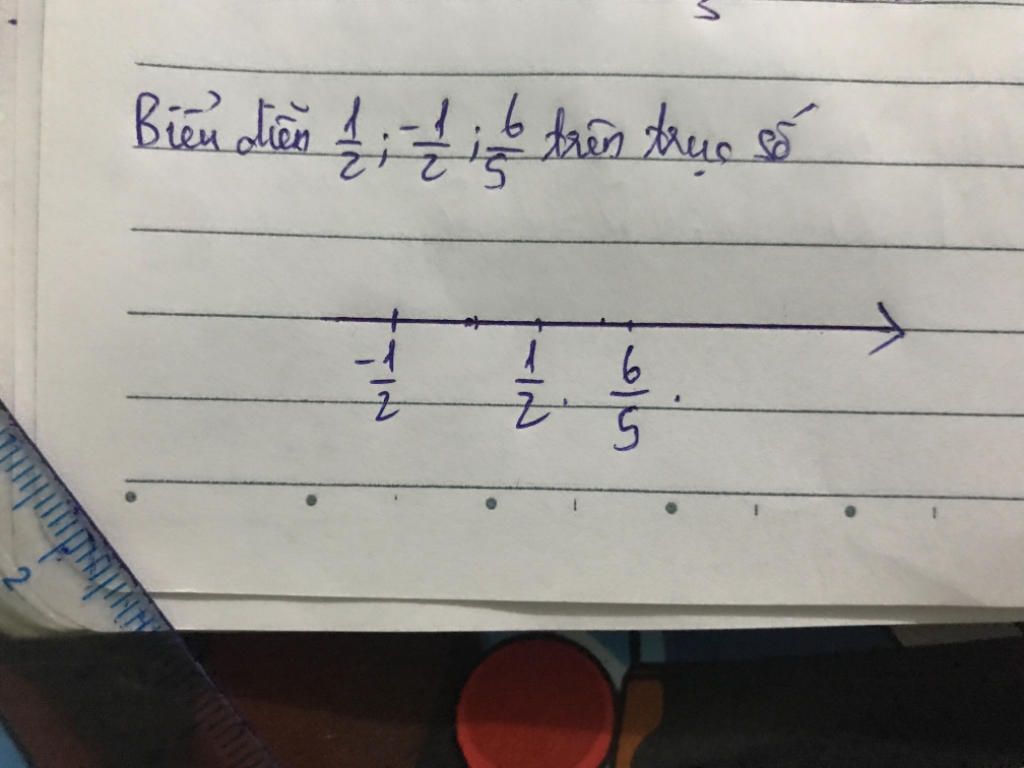 5
Biểu diễn 1/2 ; -1/2 ; 6/5 trên trục số
-1/2 1/2 . 6/5 .
2